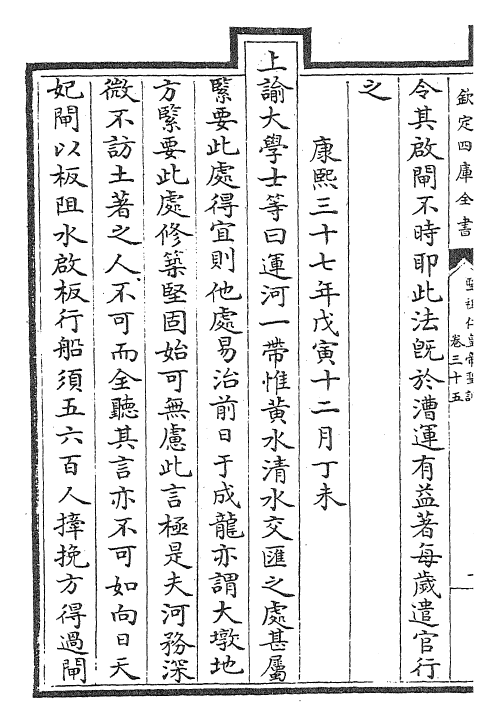 欽定四庫全書
聖祖仁皇帝聖訓
卷三十五
令其啟閘不時即此法既於漕運有益著每歲遣官行
之
康熙三十七年戊寅十二月丁未
上諭大學士等曰運河一帶惟黃水清水交匯之處甚屬
緊要此處得宜則他處易治前日于成龍亦謂大墩地
方緊要此處修築堅固始可無慮此言極是夫河務深
微不訪土著之人不可而全聽其言亦不可如向日天
妃閘以板阻水啟板行船須五六百人撁挽方得過閘